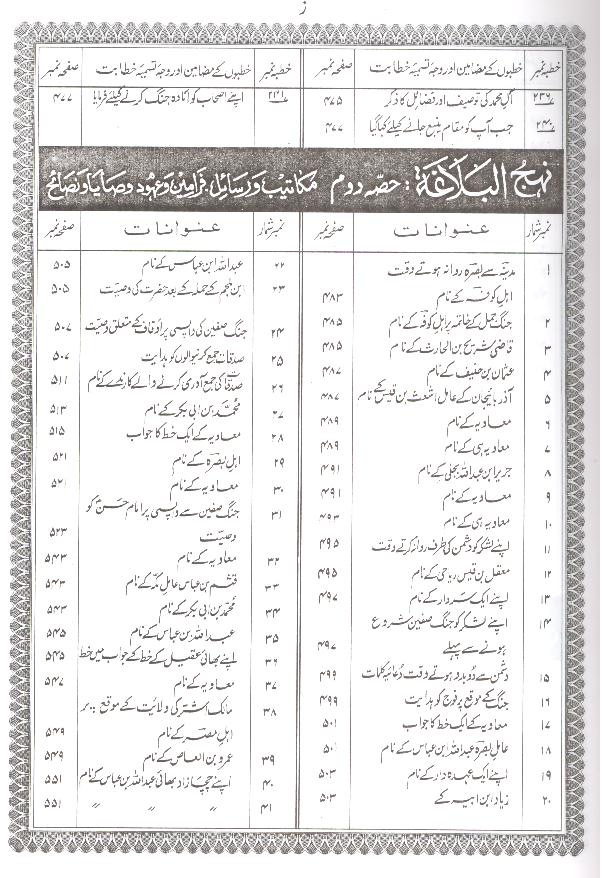 ز
خطبہ نمبر خطبوں کے مضامین اور وجہ تسمیہ خطابت صفحہ نمبر
۲۳۶ آلِ محمد کی توصیف اور فضائل کا ذکر ۴۷۵
۲۴۰ جب آپ کو مقام ینبع جانے کیلئے کہا گیا ۴۷۷
خطبہ نمبر خطبوں کے مضامین اور وجہ تسمیہ خطابت صفحہ نمبر
۲۴۱ اپنے اصحاب کو آمادہ جنگ کرنے کیلئے فرمایا ۴۷۷
نہج البلاغۃ : حصہ دوم مکاتیب و رسائل، فرامین و عہود و وصایا و نصائح
نمبر شمار عنوانات صفحہ نمبر
۱ مدینہ سے بصرہ روانہ ہوتے وقت
اہل کوفہ کے نام ۴۸۳
۲ جنگ جمل کے خاتمہ پر اہل کوفہ کے نام ۴۸۵
۳ قاضی شریح بن الحارث کے نام ۴۸۵
۴ عثمان بن حنیف کے نام ۴۸۷
۵ آذربائیجان کے عامل اشعث بن قیس کے نام ۴۸۷
۶ معاویہ کے نام ۴۸۹
۷ معاویہ ہی کے نام ۴۸۹
۸ جریر ابن عبداللہ بجلی کے نام ۴۹۱
۹ معاویہ کے نام ۴۹۱
۱۰ معاویہ ہی کے نام ۴۹۳
۱۱ اپنے لشکر کو دشمن کی طرف روانہ کرتے وقت ۴۹۵
۱۲ معقل بن قیس ریاحی کے نام ۴۹۵
۱۳ اپنے ایک سردار کے نام ۴۹۷
۱۴ اپنے لشکر کو جنگ صفین شروع
ہونے سے پہلے ۴۹۷
۱۵ دشمن سے دوبدو ہوتے وقت دعائیہ کلمات ۴۹۹
۱۶ جنگ کے موقع پر فوج کو ہدایت ۴۹۹
۱۷ معاویہ کے ایک خط کا جواب ۵۰۱
۱۸ عامل بصرہ عبداللہ ابن عباس کے نام ۵۰۱
۱۹ اپنے ایک عہدہ دار کے نام ۵۰۳
۲۰ زیاد ابن ابیہ کے ۵۰۳
نمبر شمار عنوانات صفحہ نمبر
۲۲ عبداللہ ابن عباس کے نام ۵۰۵
۲۳ ابن ملجم کے حملہ کے بعد حضرت کی وصیت ۵۰۵
۲۴ جنگ صفین کی واپسی پر اوقاف کے متعلق وصیت ۵۰۷
۲۵ صدقات جمع کرنیوالوں کو ہدایت ۵۰۷
۲۶ صدقات کی جمع آوری کرنے والے کارندے کے نام ۵۱۱
۲۷ محمد بن ابی بکر کے نام ۵۱۳
۲۸ معاویہ کے ایک خط کا جواب ۵۱۵
۲۹ اہل بصرہ کے نام ۵۲۱
۳۰ معاویہ کے نام ۵۲۱
۳۱ جنگ صفین سے واپسی پر امام حسنؑ کو
وصیت ۵۲۳
۳۲ معاویہ کے نام ۵۴۳
۳۳ قثم بن عباس عامل مکہ کے نام ۵۴۳
۳۴ محمد بن ابی بکر کے نام ۵۴۳
۳۵ عبداللہ بن عباس کے نام ۵۴۵
۳۶ اپنے بھائی عقیل کے خط کے جواب میں خط ۵۴۵
۳۷ معاویہ کے نام ۵۴۷
۳۸ مالک اشتر کی ولایت کے موقع پر
اہل مصر کے نام ۵۴۹
۳۹ عمرو بن العاص کے نام ۵۴۹
۴۰ اپنے چچا زاد بھائی عبداللہ بن عباس کے نام ۵۵۱
۴۱ " " " ۵۵۱